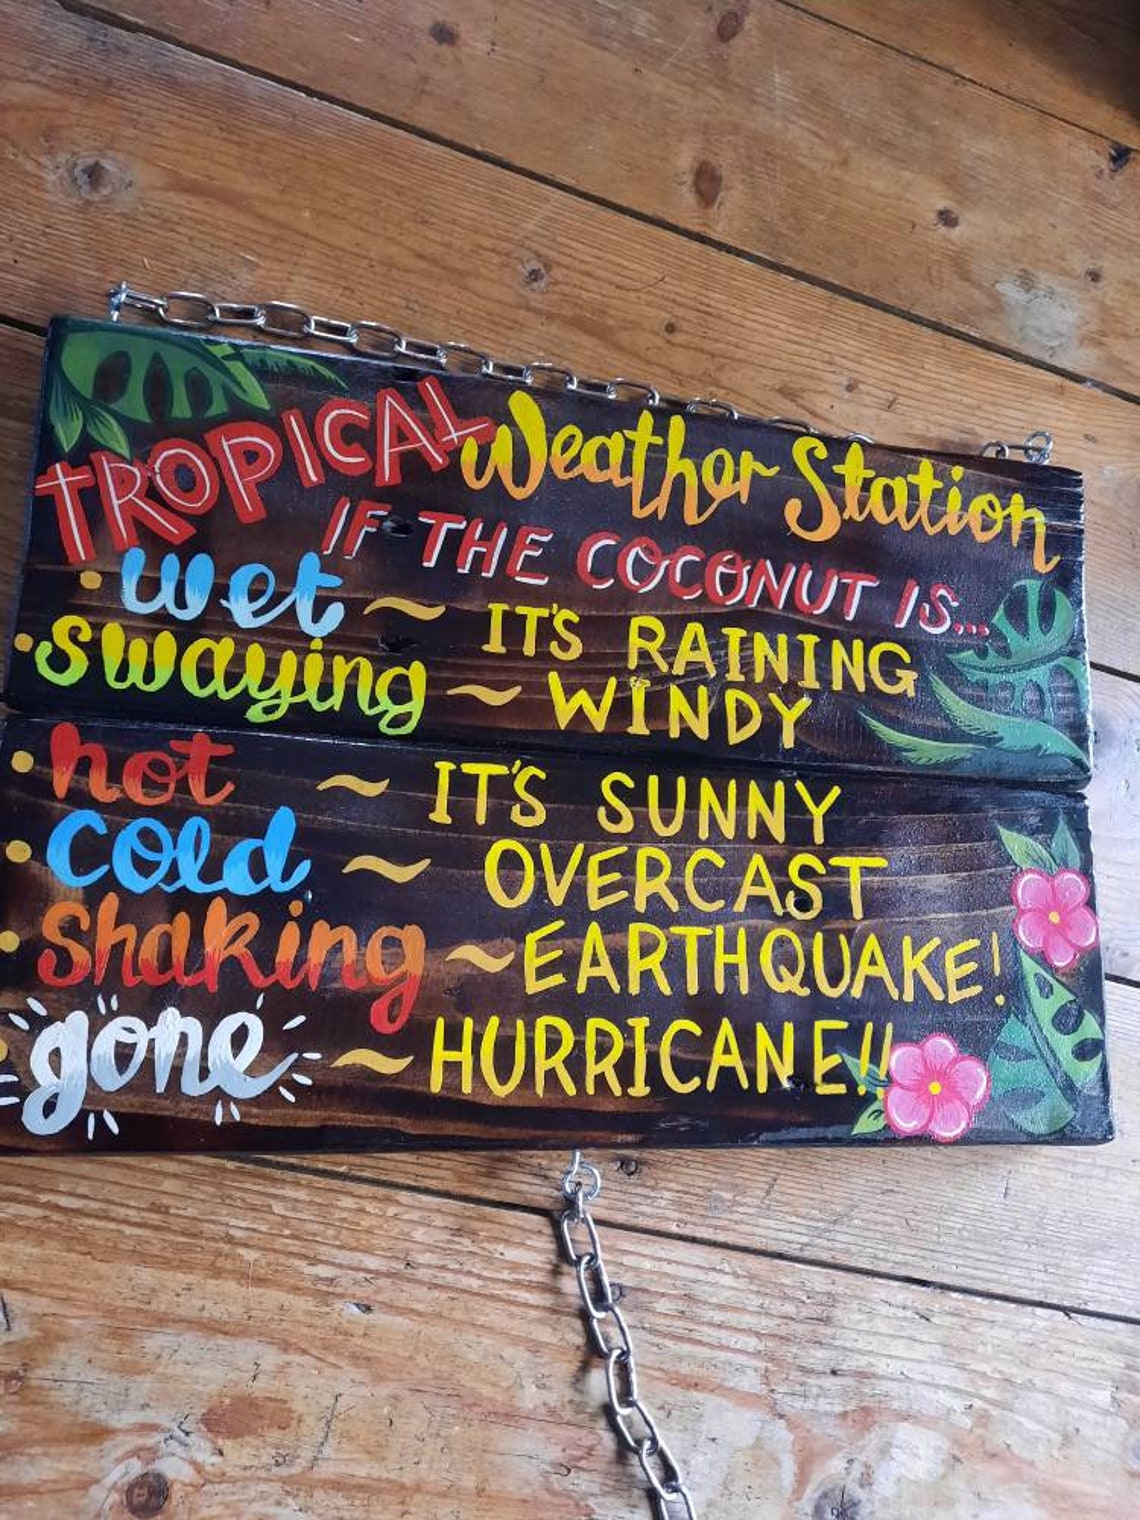 TROPICAL Weather Station
IF THE COCONUT IS...
• wet ~ IT'S RAINING
• swaying ~ WINDY
• hot ~ IT'S SUNNY
• cold ~ OVERCAST
• Shaking ~ EARTHQUAKE!
• gone ~ HURRICANE!!